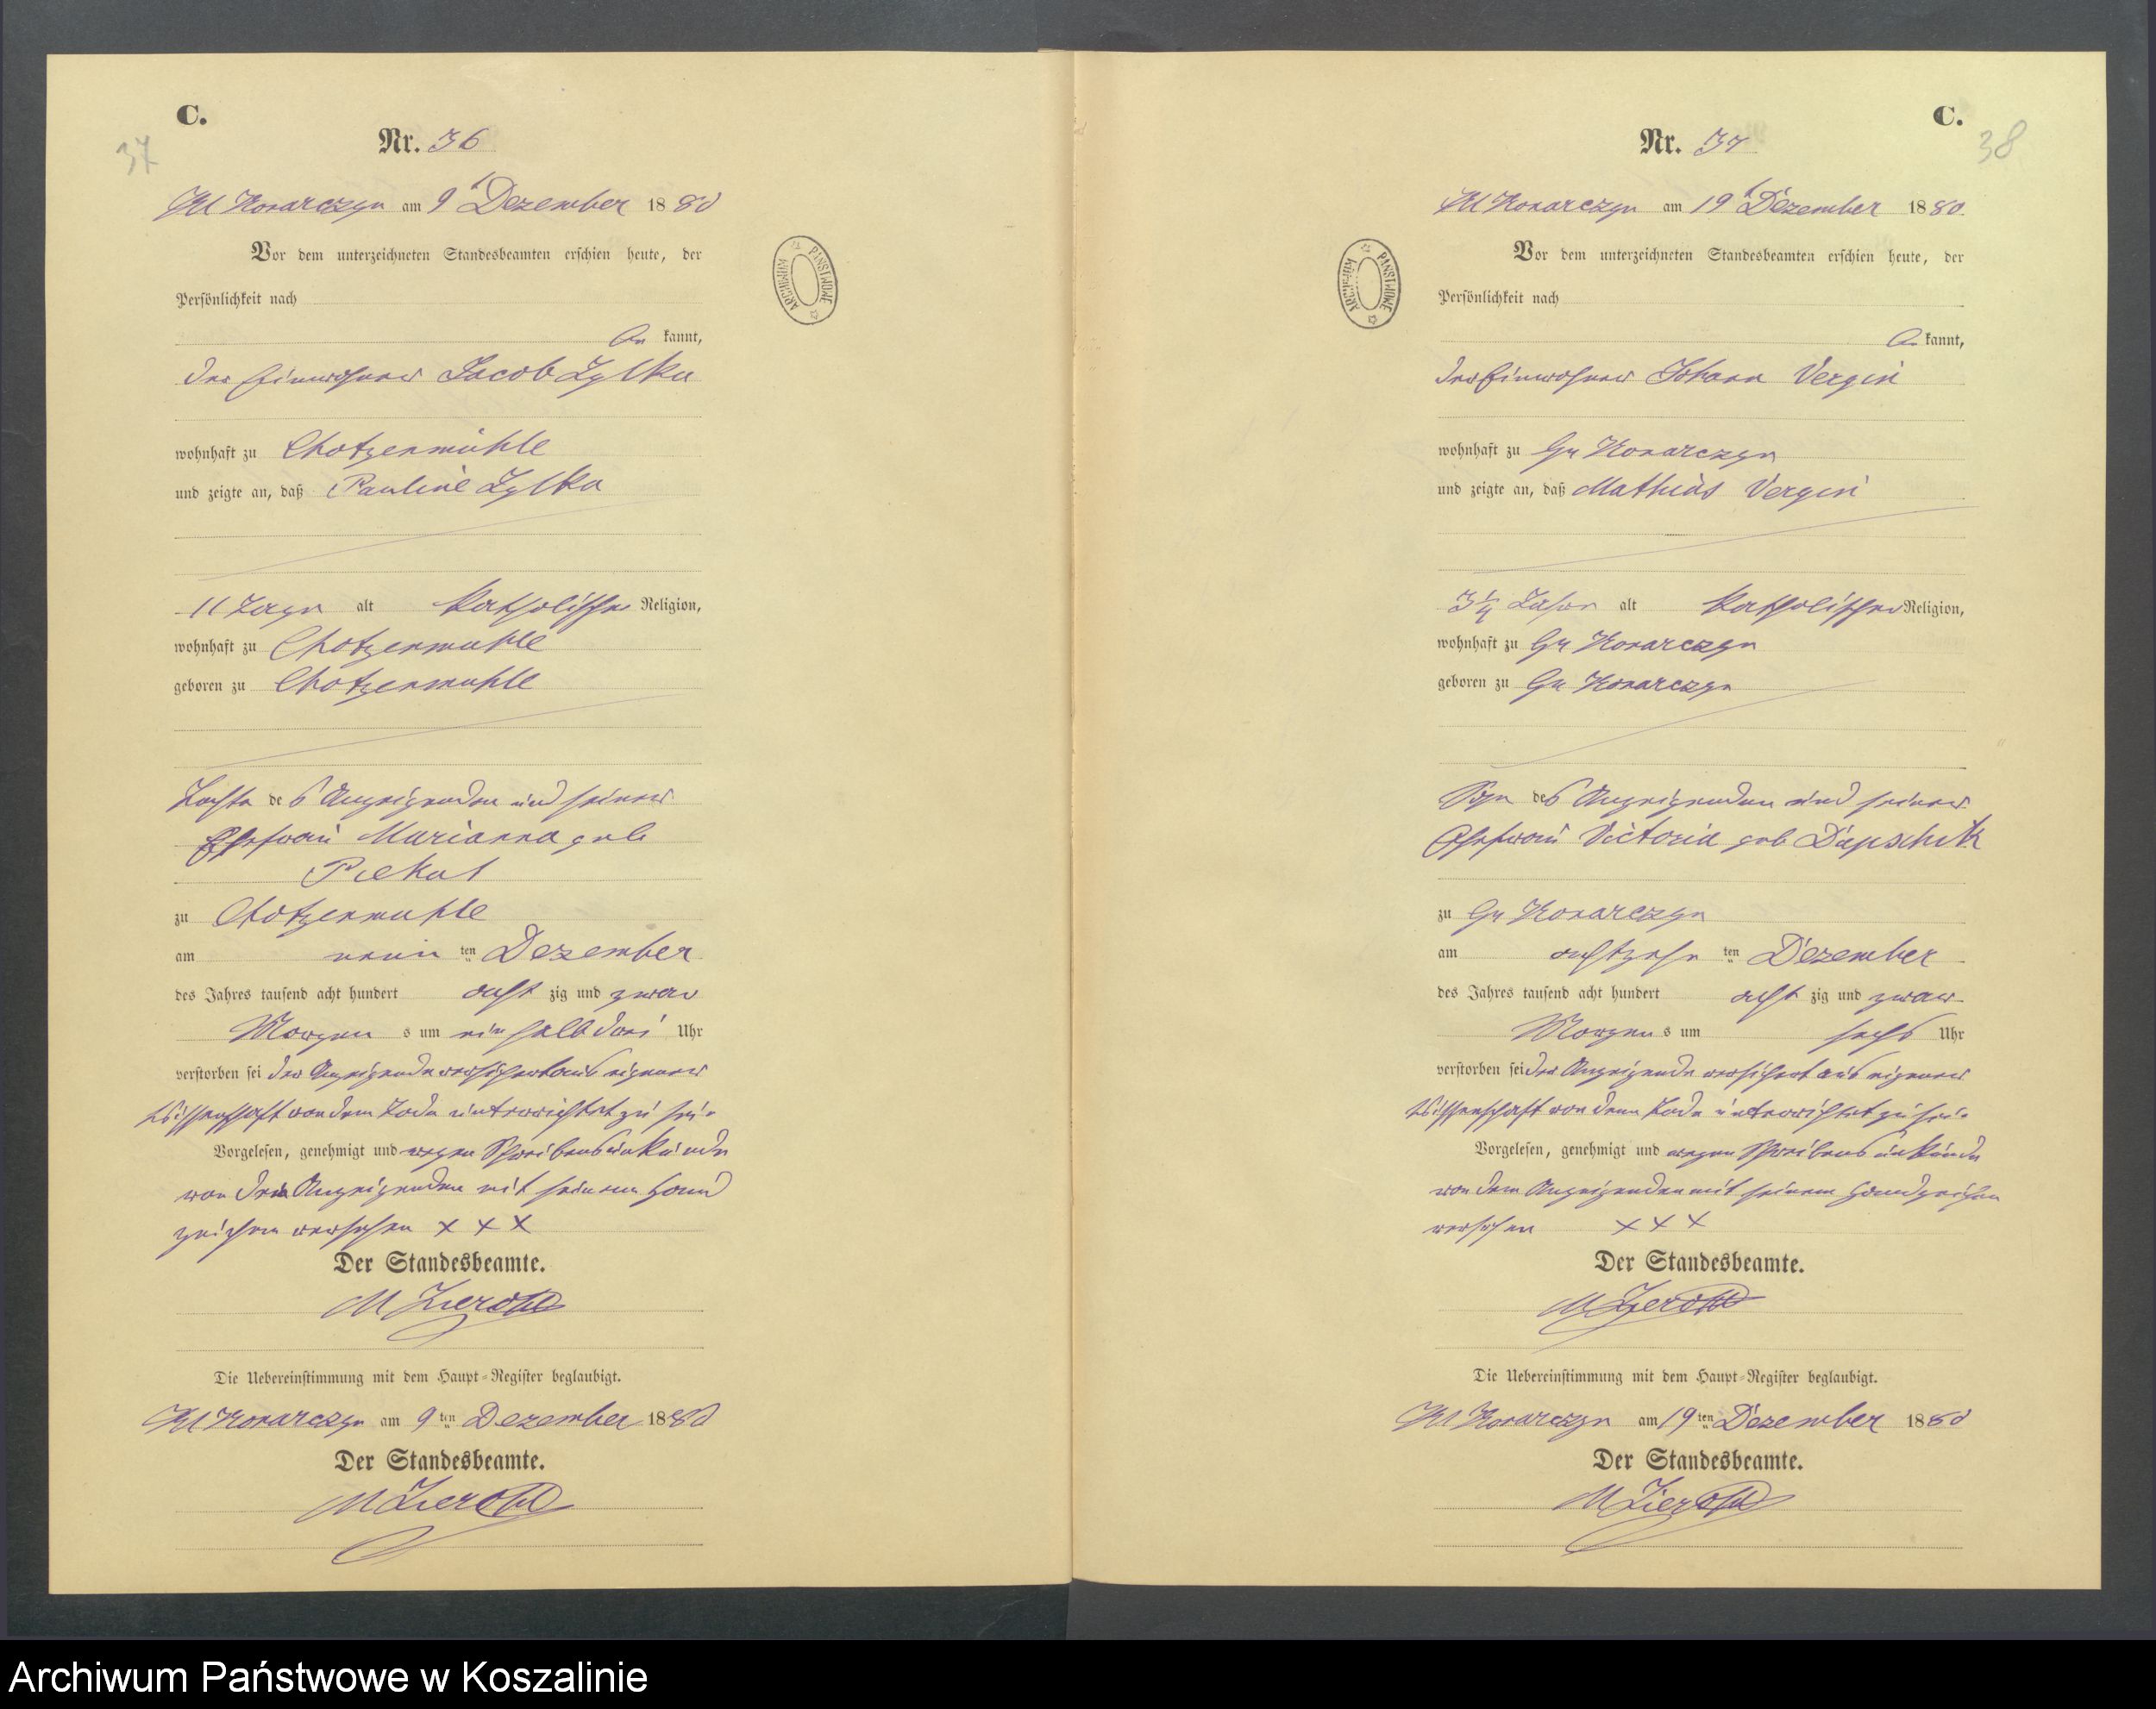 C.
37
Nr. 36
Kl Konarczyn am 9t Dezember 1880
Vor dem unterzeichneten Standesbeamten erschien heute, der
Persönlichkeit nach
kannt,
der Einwohner Jacob Zylka
wohnhaft zu Chotzenmühle
und zeigte an, daß Pauline Zylka
11 Tage alt katholischer Religion,
wohnhaft zu Chotzenmühle
geboren zu Chotzenmühle
Tochter des Anzeigenden und seiner
Ehefrau Marianna geb
zu Chotzenmühle
am neunten Dezember
des Jahres tausend acht hundert achtzig und zwar
Morgens um ein halb drei Uhr
verstorben sei der Anzeigende versichert aus eigener
Wissenschaft von dem Tode unterrichtet zu sein
Vorgelesen, genehmigt und wegen Schreibensunkunde
von dem Anzeigenden mit seinem Hand
zeichen versehen x x x
Der Standesbeamte.
M Zieroth
Die Uebereinstimmung mit dem Haupt-Register beglaubigt.
Kl Konarczyn am 9ten Dezember 1880
Der Standesbeamte.
M Zieroth
ARCHIWUM PAŃSTWOWE
C.
38
Nr. 37
Kl Konarczyn am 19t Dezember 1880.
Vor dem unterzeichneten Standesbeamten erschien heute, der
Persönlichkeit nach
kannt,
der Einwohner Johann Vergin
wohnhaft zu Gr Konarczyn
und zeigte an, daß Mathias Vergin
3¼ Jahr alt katholischer Religion,
wohnhaft zu Gr Konarczyn
geboren zu Gr Konarczyn
Sohn des Anzeigenden und seiner
Ehefrau Victoria geb
zu Gr Konarczyn
am achtzehnten Dezember
des Jahres tausend acht hundert achtzig und zwar
Morgens um sechs Uhr
verstorben sei der Anzeigende versichert aus eigener
Wissenschaft von dem Tode unterrichtet zu sein
Vorgelesen, genehmigt und wegen Schreibensunkunde
von dem Anzeigenden mit seinem Handzeichen
versehen x x x
Der Standesbeamte.
M Zieroth
Die Uebereinstimmung mit dem Haupt-Register beglaubigt.
Kl Konarczyn am 19ten Dezember 1880
Der Standesbeamte.
M Zieroth
ARCHIWUM PAŃSTWOWE
Archiwum Państwowe w Koszalinie